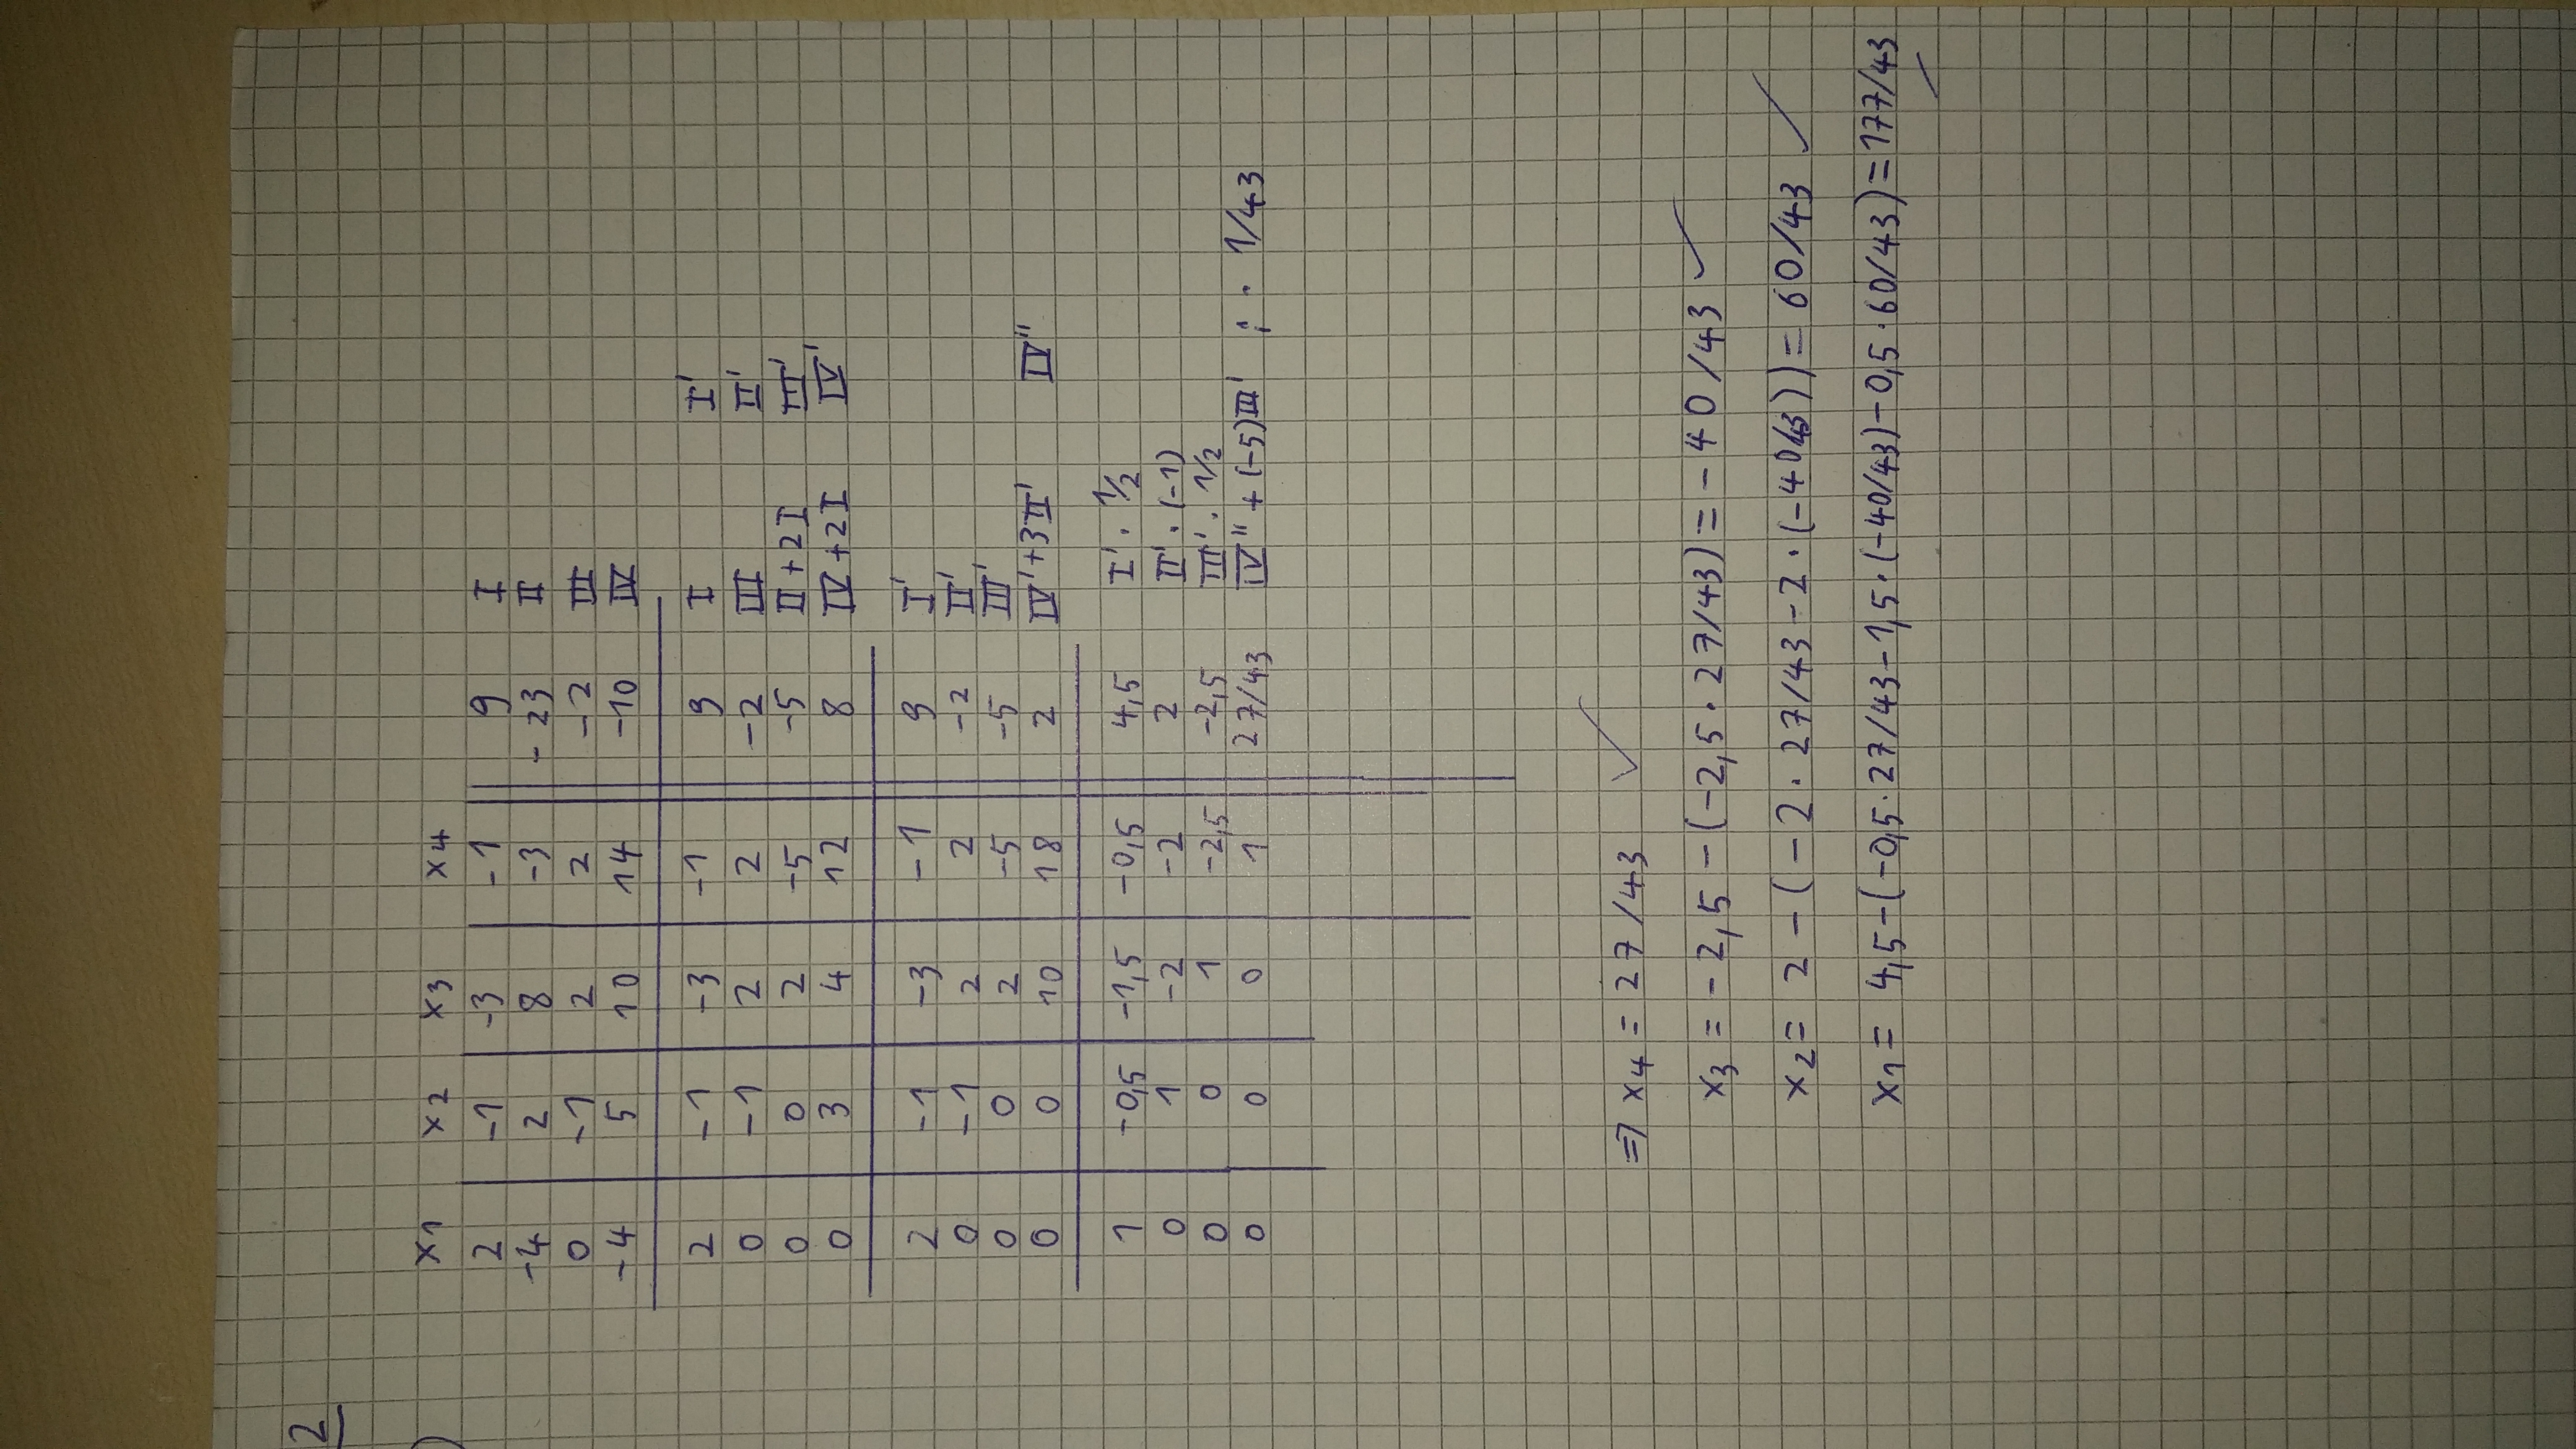 2
)
x1 x2 x3 x4
2 -1 -3 -1 9 I
-4 2 8 -3 -23 II
0 -1 2 2 -2 III
-4 5 10 14 -10 IV
2 -1 -3 -1 9 I I'
0 -1 2 2 -2 III II'
0 0 2 -5 -5 II+2I III'
0 3 4 12 8 IV+2I IV'
2 -1 -3 -1 9 I'
0 -1 2 2 -2 II'
0 0 2 -5 -5 III'
0 0 10 18 2 IV'+3II' IV''
1 -0,5 -1,5 -0,5 4,5 I' · 1/2
0 1 -2 -2 2 II' · (-1)
0 0 1 -2,5 -2,5 III' · 1/2
0 0 0 1 27/43 IV'' + (-5)III' ; · 1/43
⇒ x4 = 27/43 ✓
x3 = -2,5 - (-2,5 · 27/43) = -40/43 ✓
x2 = 2 - (-2 · 27/43 - 2 · (-40/43)) = 60/43 ✓
x1 = 4,5 - (-0,5 · 27/43 - 1,5 · (-40/43) - 0,5 · 60/43) = 177/43